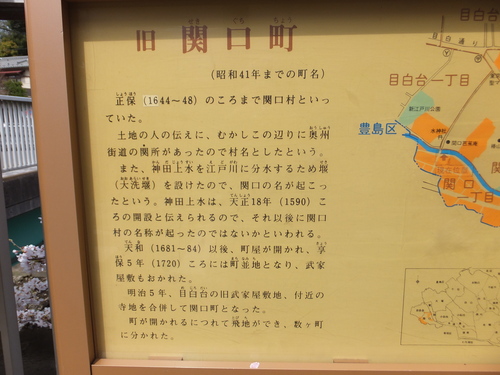 旧 関口町
せき ぐち ちょう
(昭和41年までの町名)
正保 (1644〜48) のころまで関口村といっ
ていた。
土地の人の伝えに、むかしこの辺りに奥州
街道の関所があったので村名としたという。
また、神田上水を江戸川に分水するため堰
(大洗堰) を設けたので、関口の名が起こっ
たという。神田上水は、天正18年 (1590) こ
ろの開設と伝えられるので、それ以後に関口
村の名称が起ったのではないかといわれる。
天和 (1681〜84) 以後、町屋が開かれ、享
保5年 (1720) ころには町並地となり、武家
屋敷もおかれた。
明治5年、目白台の旧武家屋敷地、付近の
寺地を合併して関口町となった。
町が開かれるにつれて飛地ができ、数ヶ町
に分かれた。
目白台
目白通り
目白台一丁目
新江戸川公園
豊島区
水神社
関口芭蕉庵
関口
二丁目
関